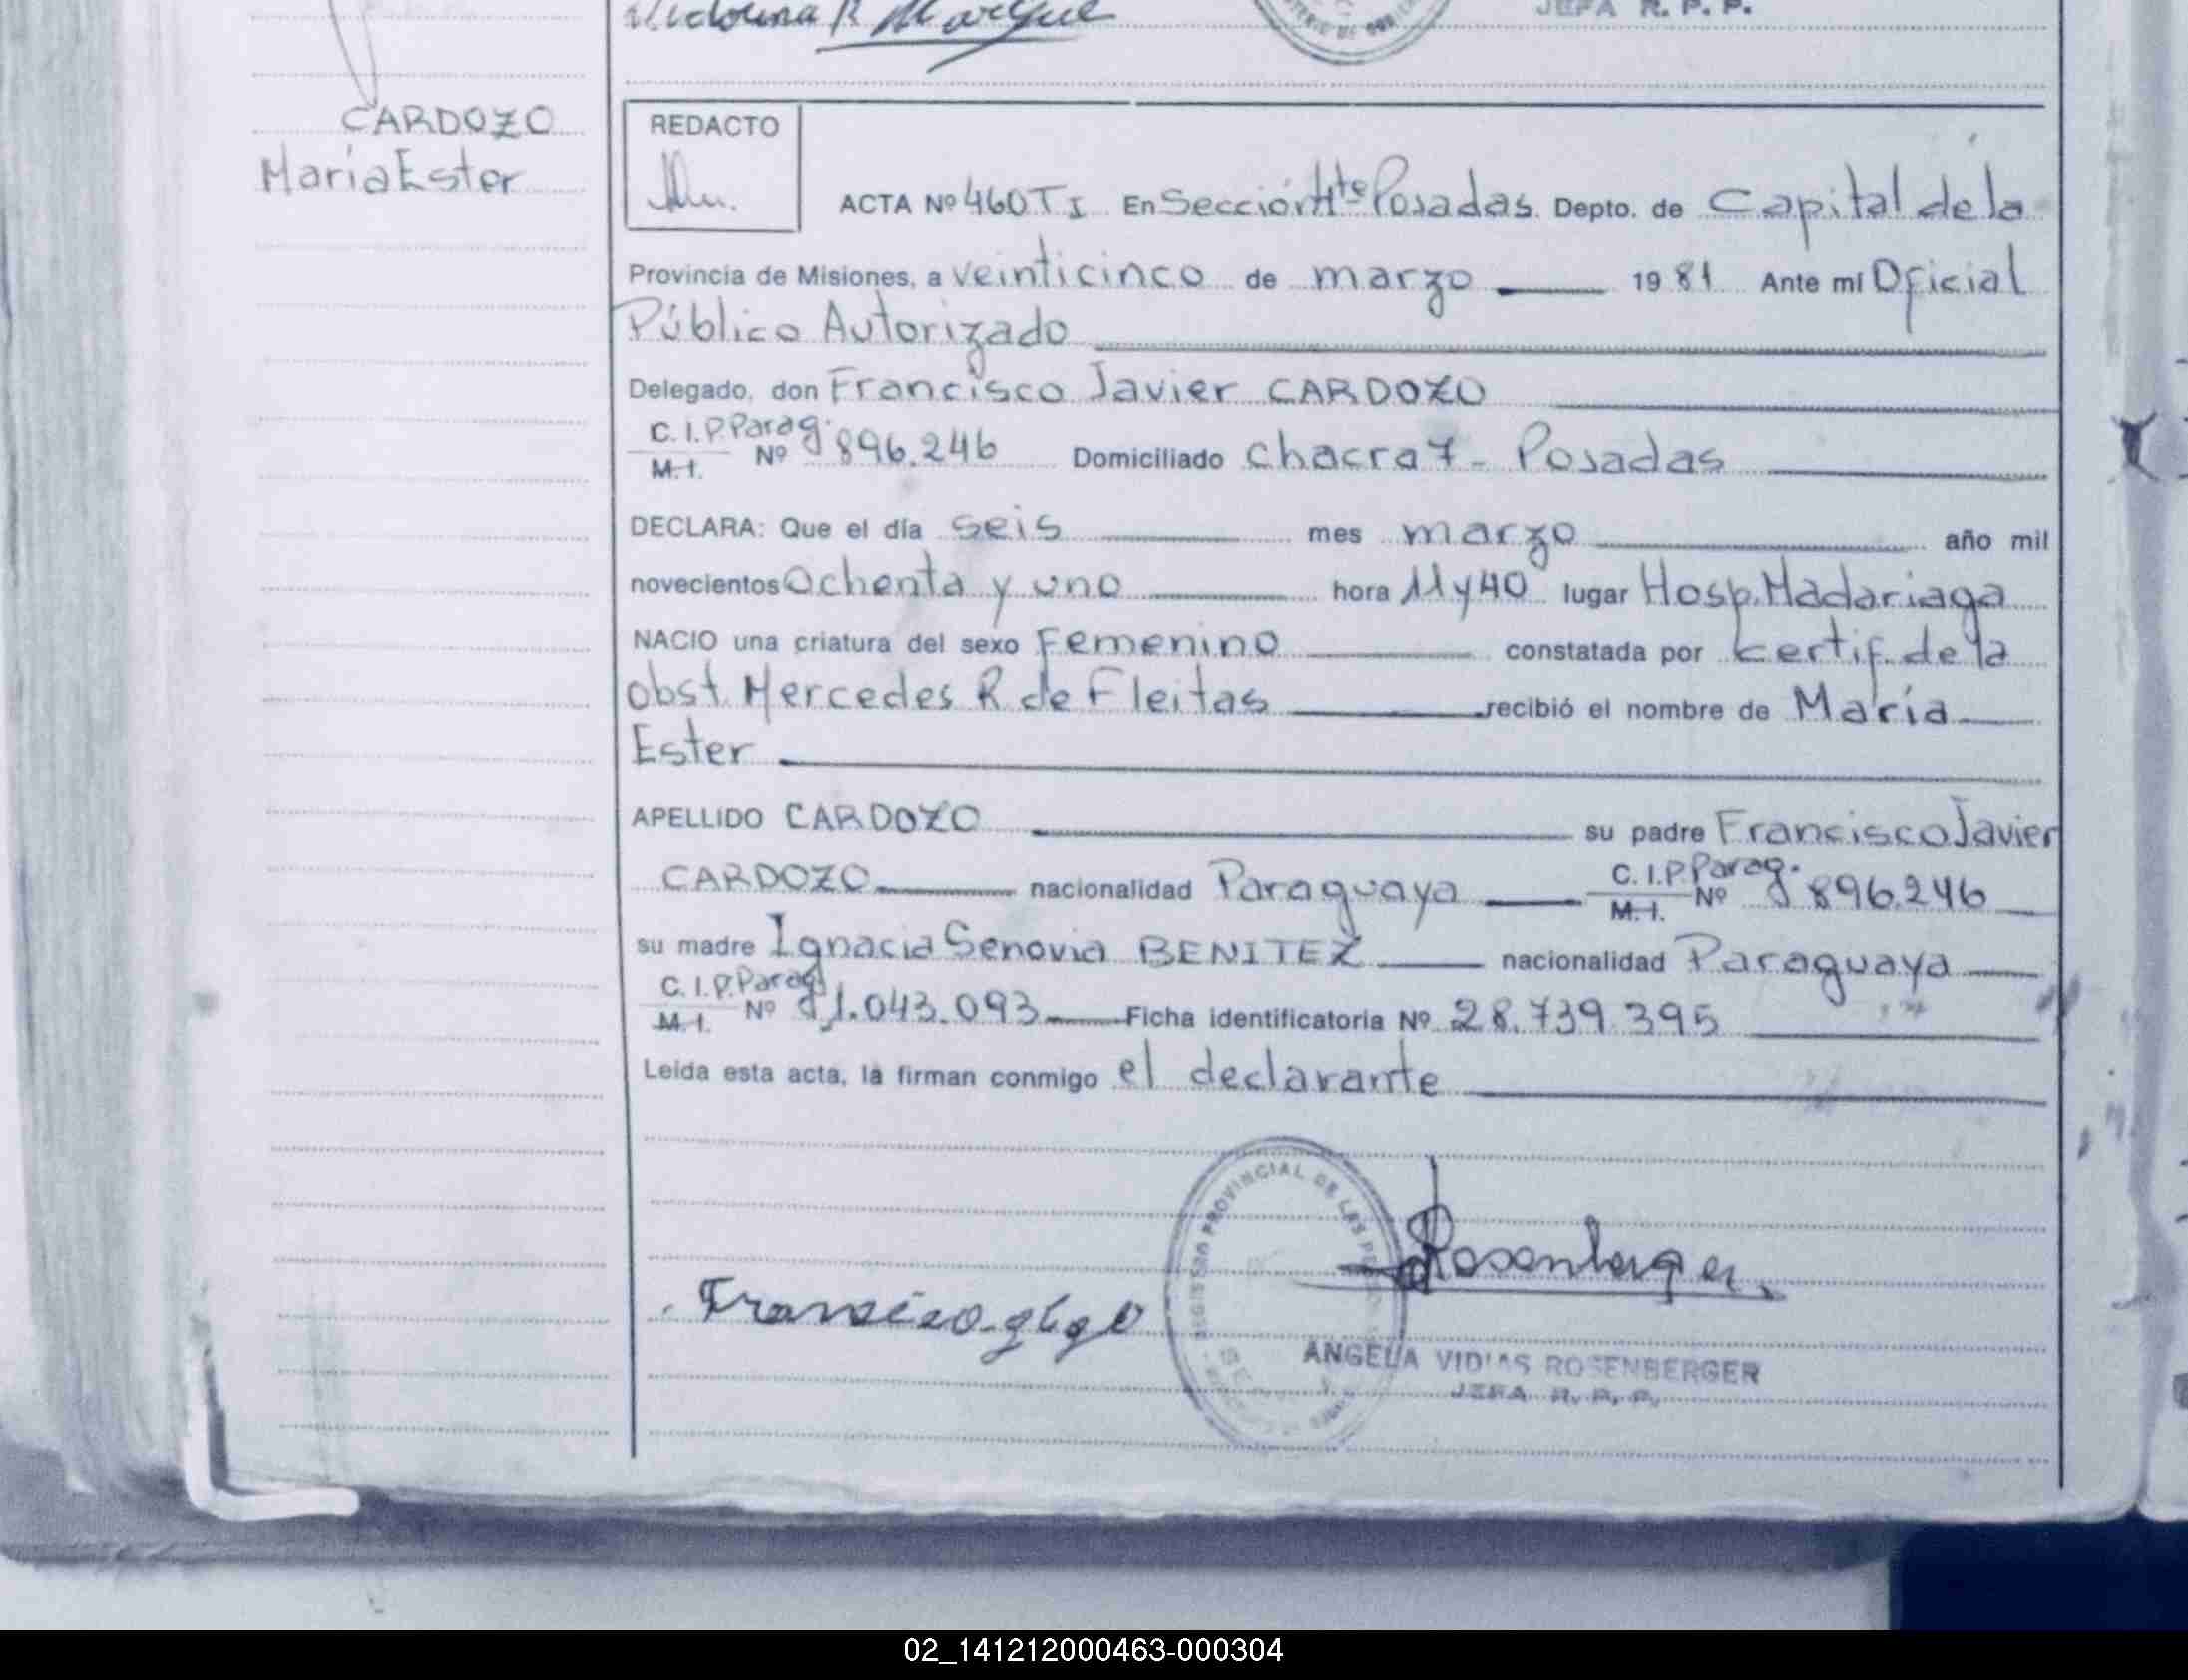 JEFA R. P. P.
CARDOZO
María Ester
REDACTO
ACTA Nº 460 T I En Sección 1ª Posadas Depto. de Capital de la
Provincia de Misiones, a veinticinco de marzo 1981 Ante mí Oficial
Público Autorizado
Delegado, don Francisco Javier CARDOZO
C.I.P. Parag.
M.I. Nº 896.246 Domiciliado chacra 7- Posadas
DECLARA: Que el día seis mes marzo año mil
novecientos Ochenta y uno hora 11 y 40 lugar Hosp. Madariaga
NACIO una criatura del sexo Femenino constatada por certif. de la
obst. Mercedes R de Fleitas recibió el nombre de María
Ester
APELLIDO CARDOZO su padre Francisco Javier
CARDOZO nacionalidad Paraguaya C.I.P. Parag.
M.I. Nº 896.246
su madre Ignacia Senovia BENITEZ nacionalidad Paraguaya
C.I.P. Parag.
M.I. Nº 1.043.093 Ficha identificatoria Nº 28.739.395
Leída esta acta, la firman conmigo el declarante
REGISTRO PROVINCIAL DE LAS
Rosenberger
Francisco
ANGELA VIDIAS ROSENBERGER
JEFA R. P. P.
02_141212000463-000304